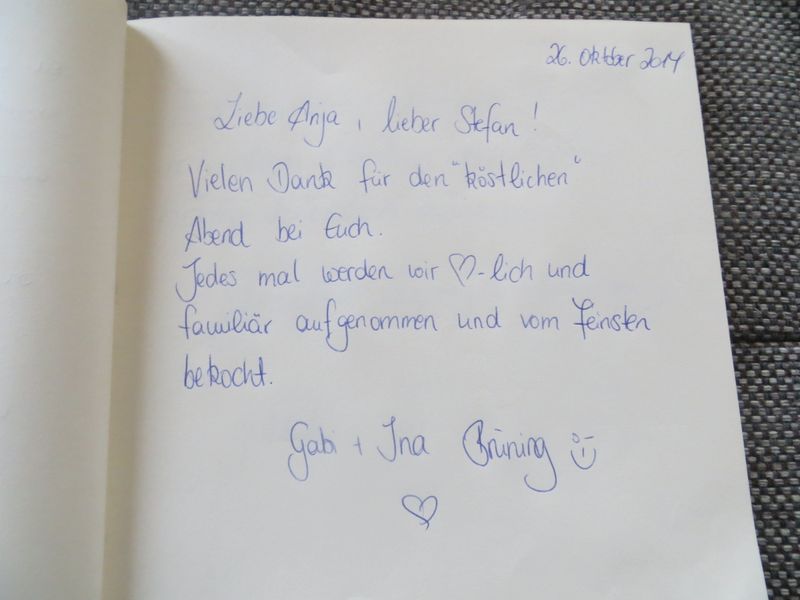 26. Oktober 2014
Liebe Anja, lieber Stefan!
Vielen Dank für den "köstlichen"
Abend bei Euch.
Jedes mal werden wir ♡-lich und
familiär aufgenommen und vom feinsten
bekocht.
Gabi + Ina Brüning